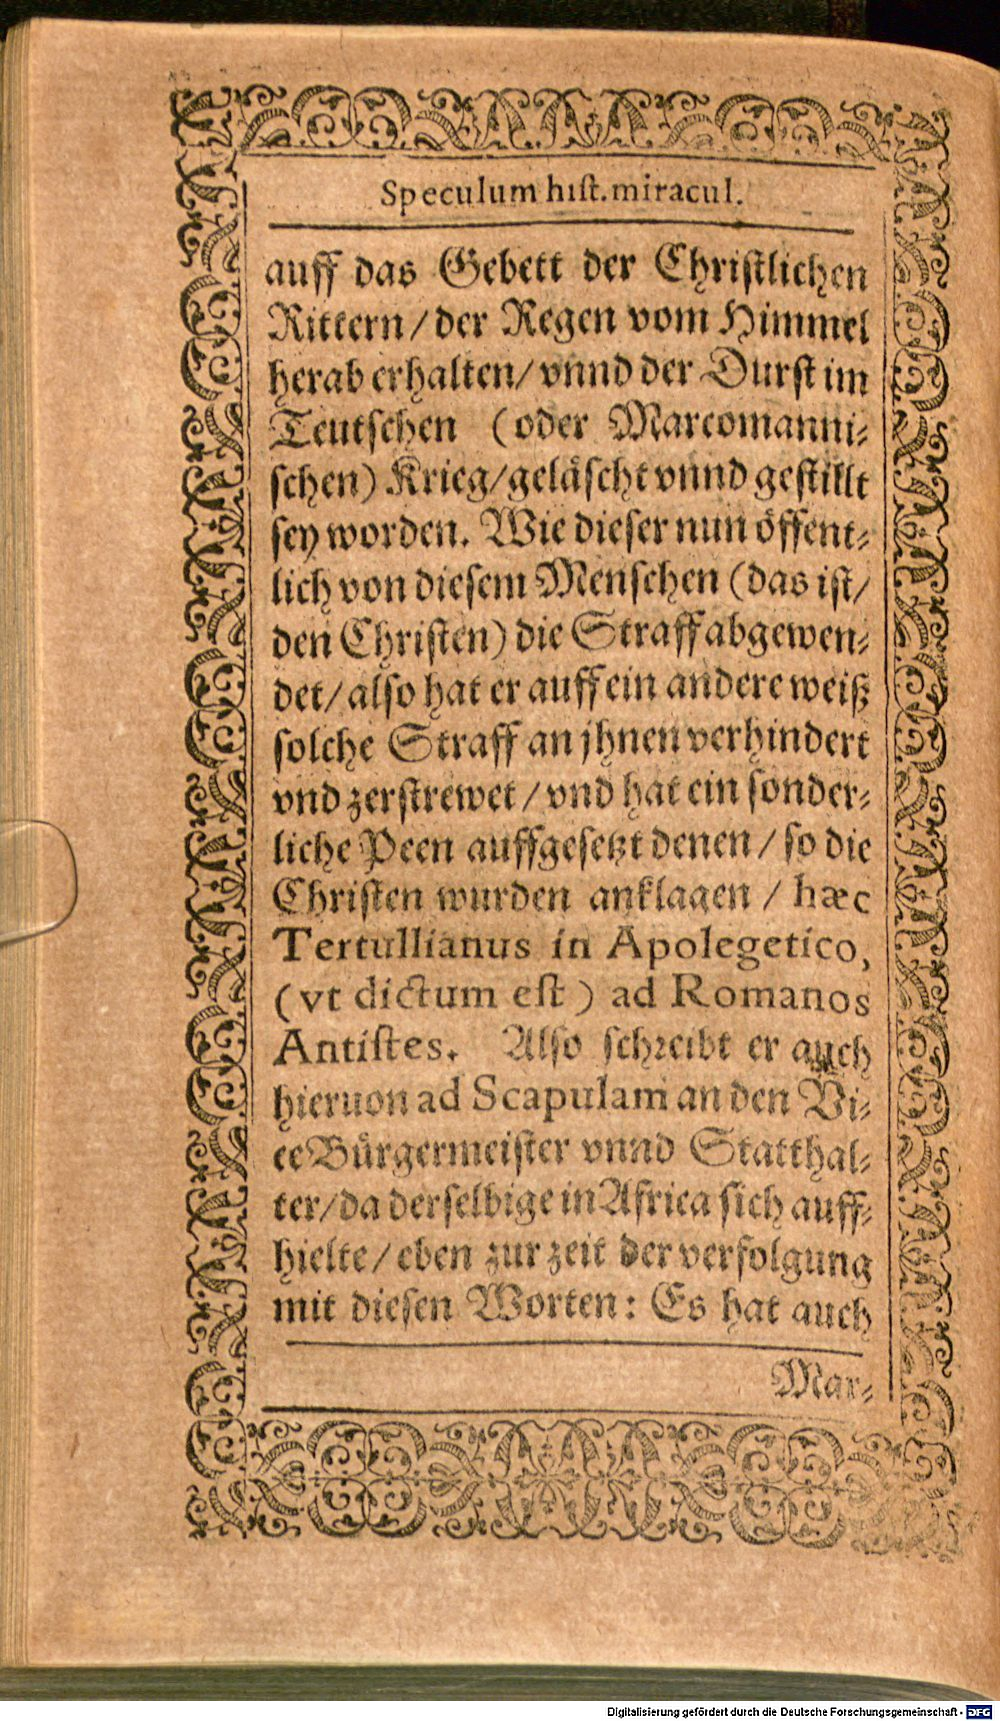 Speculum hist. miracul.
auff das Gebett der Christlichen
Rittern / der Regen vom Himmel
herab erhalten / vnnd der Durst im
Teutschen (oder Marcomanni-
schen) Krieg / geläscht vnnd gestillt
sey worden. Wie dieser nun öffent-
lich von diesem Menschen (das ist /
den Christen) die Straff abgewen-
det / also hat er auff ein andere weiß
solche Straff an jhnen verhindert
vnd zerstrewet / vnd hat ein sonder-
liche Peen auffgesetzt denen / so die
Christen wurden anklagen / hæc
Tertullianus in Apolegetico,
(vt dictum est) ad Romanos
Antistes. Also schreibt er auch
hieruon ad Scapulam an den Vi-
ce Bürgermeister vnnd Statthal-
ter / da derselbige in Africa sich auff-
hielte / eben zur zeit der verfolgung
mit diesen Worten: Es hat auch
Mar-
Digitalisierung gefördert durch die Deutsche Forschungsgemeinschaft - DFG